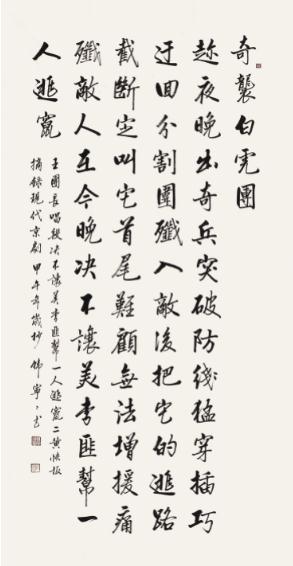 奇襲白虎團
趁夜晚出奇兵突破防綫猛穿插巧
迂回分割圍殲入敵後把它的逃路
截斷定叫它首尾難顧無法增援痛
殲敵人在今晚决不讓美李匪幫一
人逃竄
王團長唱段决不讓美李匪幫一人逃竄二黄快板
摘錄現代京劇 甲午年歲杪 佛寧書